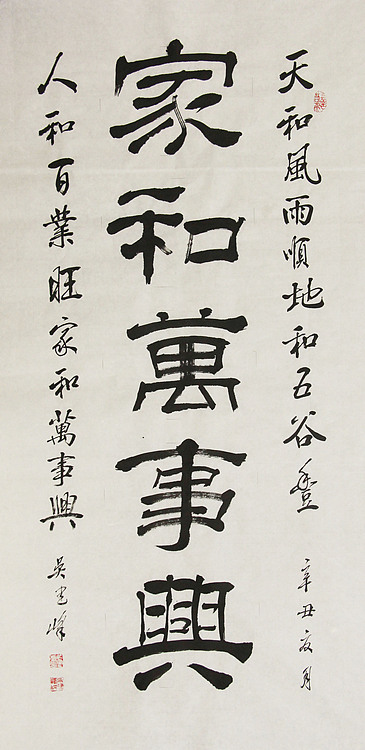 天和風雨順地和五谷豐
辛丑月
家和萬事興
人和百業旺家和萬事興
吳峰